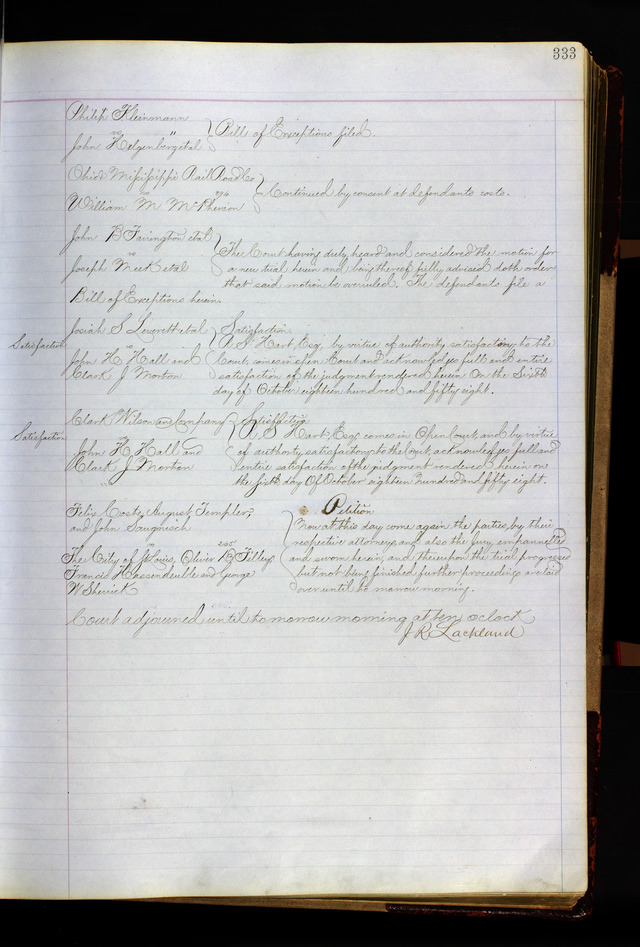 333
Philip Kleinmann
vs "
John Helgenberg etal
Bill of Exceptions filed.
Ohio & Missisippi Rail Road Co
vs 274
William M McPherson
Continued by consent at defendants costs.
John B Farington etal
vs
Joseph Meek etal
The Court having duly heard and considered the motion for
a new trial herein and being thereof fully advised doth order
that said motion be overruled. The defendants file a
Bill of Exceptions herein.
Satisfaction
Josiah S Leverett etal
vs
John H. Hall and
Clark J Morton
Satisfaction
A. S. Hart Esq. by virtue of authority satisfactory to the
Court, comes in open Court and acknowledges full and entire
satisfaction of the judgment rendered herein On the Sixth
day of October eighteen hundred and fifty eight.
Satisfaction
Clark Wilson and Company
vs
John H. Hall and
Clark J Morton
Satisfaction
A. S Hart, Esq. comes in Open Court, and by virtue
of authority satisfactory to the Court, acknowledges full and
entire satisfaction of the judgment rendered herein on
the fifth day Of October eighteen hundred and fifty eight.
Felix Coste, August Templer,
and John Saugnisch
vs 255
The City of St Louis, Oliver B Filley
Francis Hassendeuble and George
W Sherrick
Petition
Now at this day come again the parties by their
respective attorneys, and also the jury empannelled
and sworn herein, and thereupon the trial progressed
but not being finished further proceedings are laid
over until to morrow morning.
Court adjourned until to morrow morning at ten oclock
J R Lackland